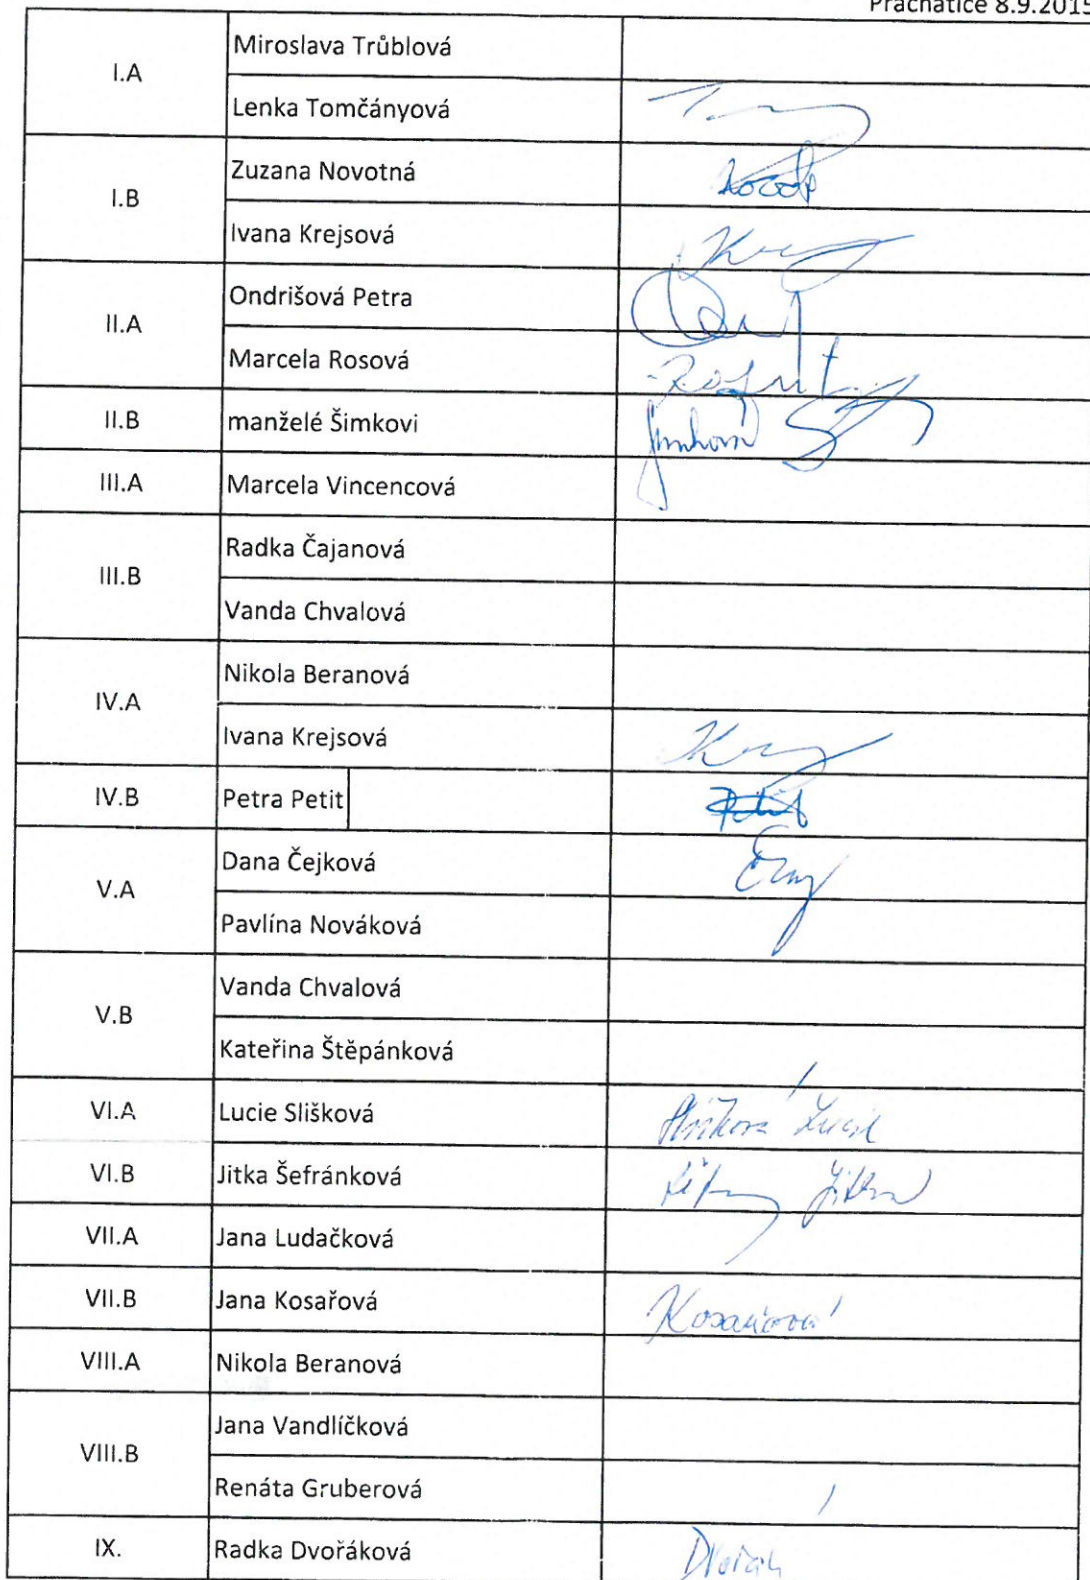 Prachatice 8.9.2015
I.A
Miroslava Trůblová
Lenka Tomčányová
I.B
Zuzana Novotná
Ivana Krejsová
II.A
Ondrišová Petra
Marcela Rosová
II.B manželé Šimkovi
III.A Marcela Vincencová
III.B
Radka Čajanová
Vanda Chvalová
IV.A
Nikola Beranová
Ivana Krejsová
IV.B Petra Petit
V.A
Dana Čejková
Pavlína Nováková
V.B
Vanda Chvalová
Kateřina Štěpánková
VI.A Lucie Slišková Slišková Lucie
VI.B Jitka Šefránková Jitka
VII.A Jana Ludačková
VII.B Jana Kosařová Kosařová
VIII.A Nikola Beranová
VIII.B
Jana Vandlíčková
Renáta Gruberová
IX. Radka Dvořáková